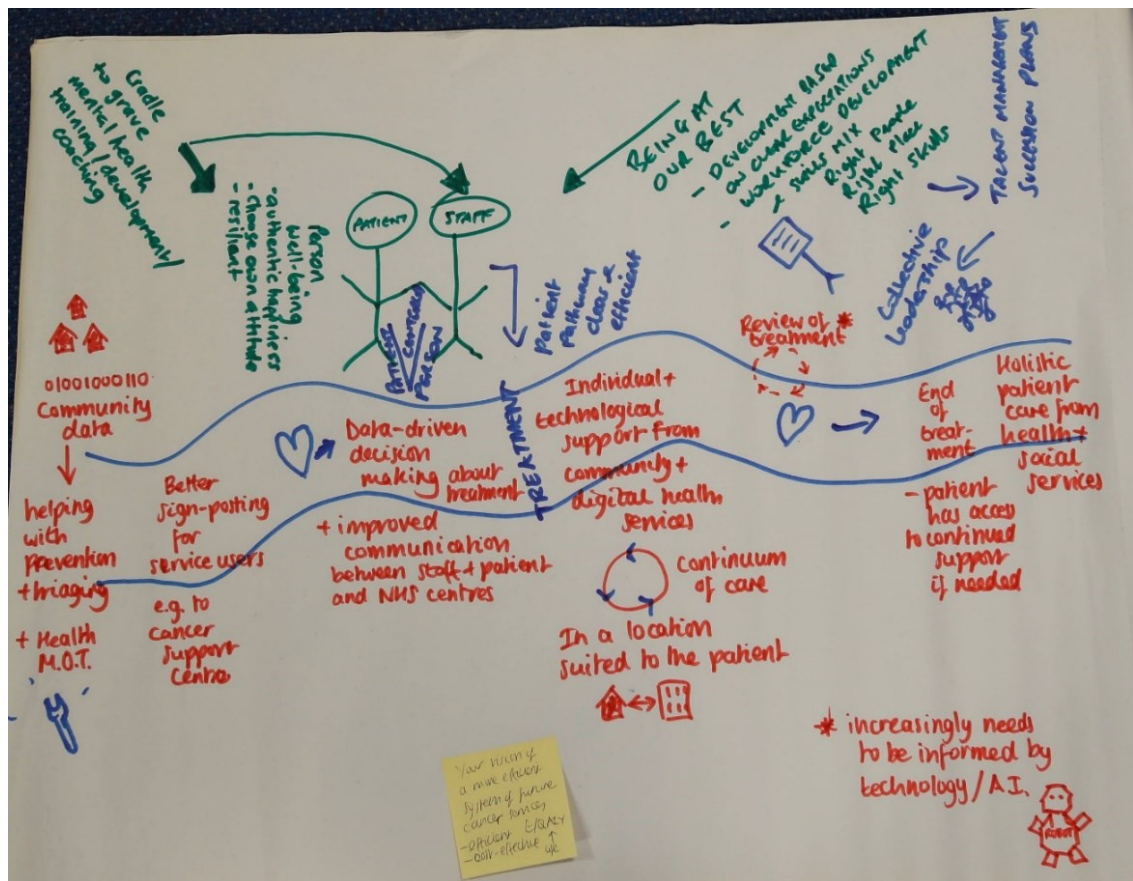 Cradle
to grave
mental health
training/development/
coaching
Person
well-being
- authentic happiness
- choose own attitude
- resilient
PATIENT
STAFF
PATIENT
CENTRED
PERSON
BEING AT
OUR BEST
- DEVELOPMENT BASED
ON CLEAR EXPECTATIONS
- WORKFORCE DEVELOPMENT
& SKILLS MIX
Right People
Right Place
Right Skills
TALENT MANAGEMENT
SUCCESSION PLANS
Collective
leadership
Patient
Pathway
clear &
efficient
TREATMENT
01001000110
Community
data
helping
with
prevention
+ triaging
+ Health
M.O.T.
Better
sign-posting
for
service users
e.g. to
cancer
support
centre
Data-driven
decision
making about
treatment
+ improved
communication
between staff + patient
and NHS centres
Individual +
technological
support from
community +
digital health
services
continuum
of care
In a location
suited to the patient
Review of *
treatment
End
of
treat-
ment
- patient
has access
to continued
support
if needed
Holistic
patient
care from
health +
social
services
* increasingly needs
to be informed by
technology/A.I.
ROBOT
Your vision of
a more efficient
system of future
cancer services
- efficient
- cost-effective